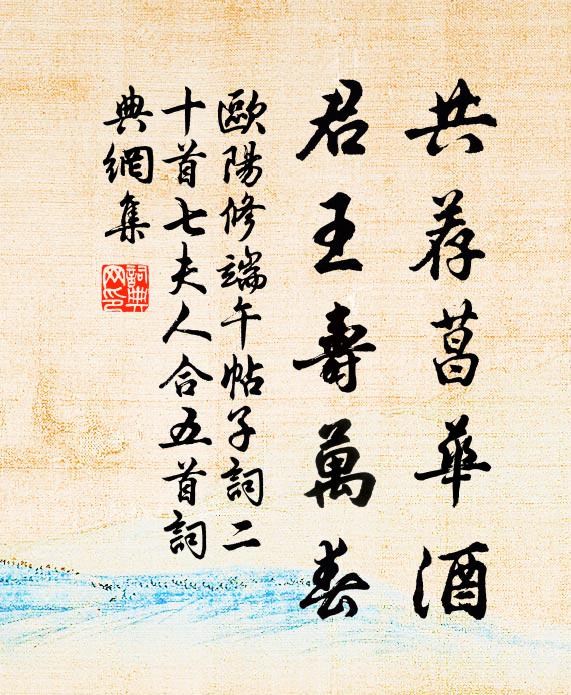 共荐菖華酒
君王壽萬春
歐陽修端午帖子詞二
十首七夫人合五首詞
典網集
詞典網印